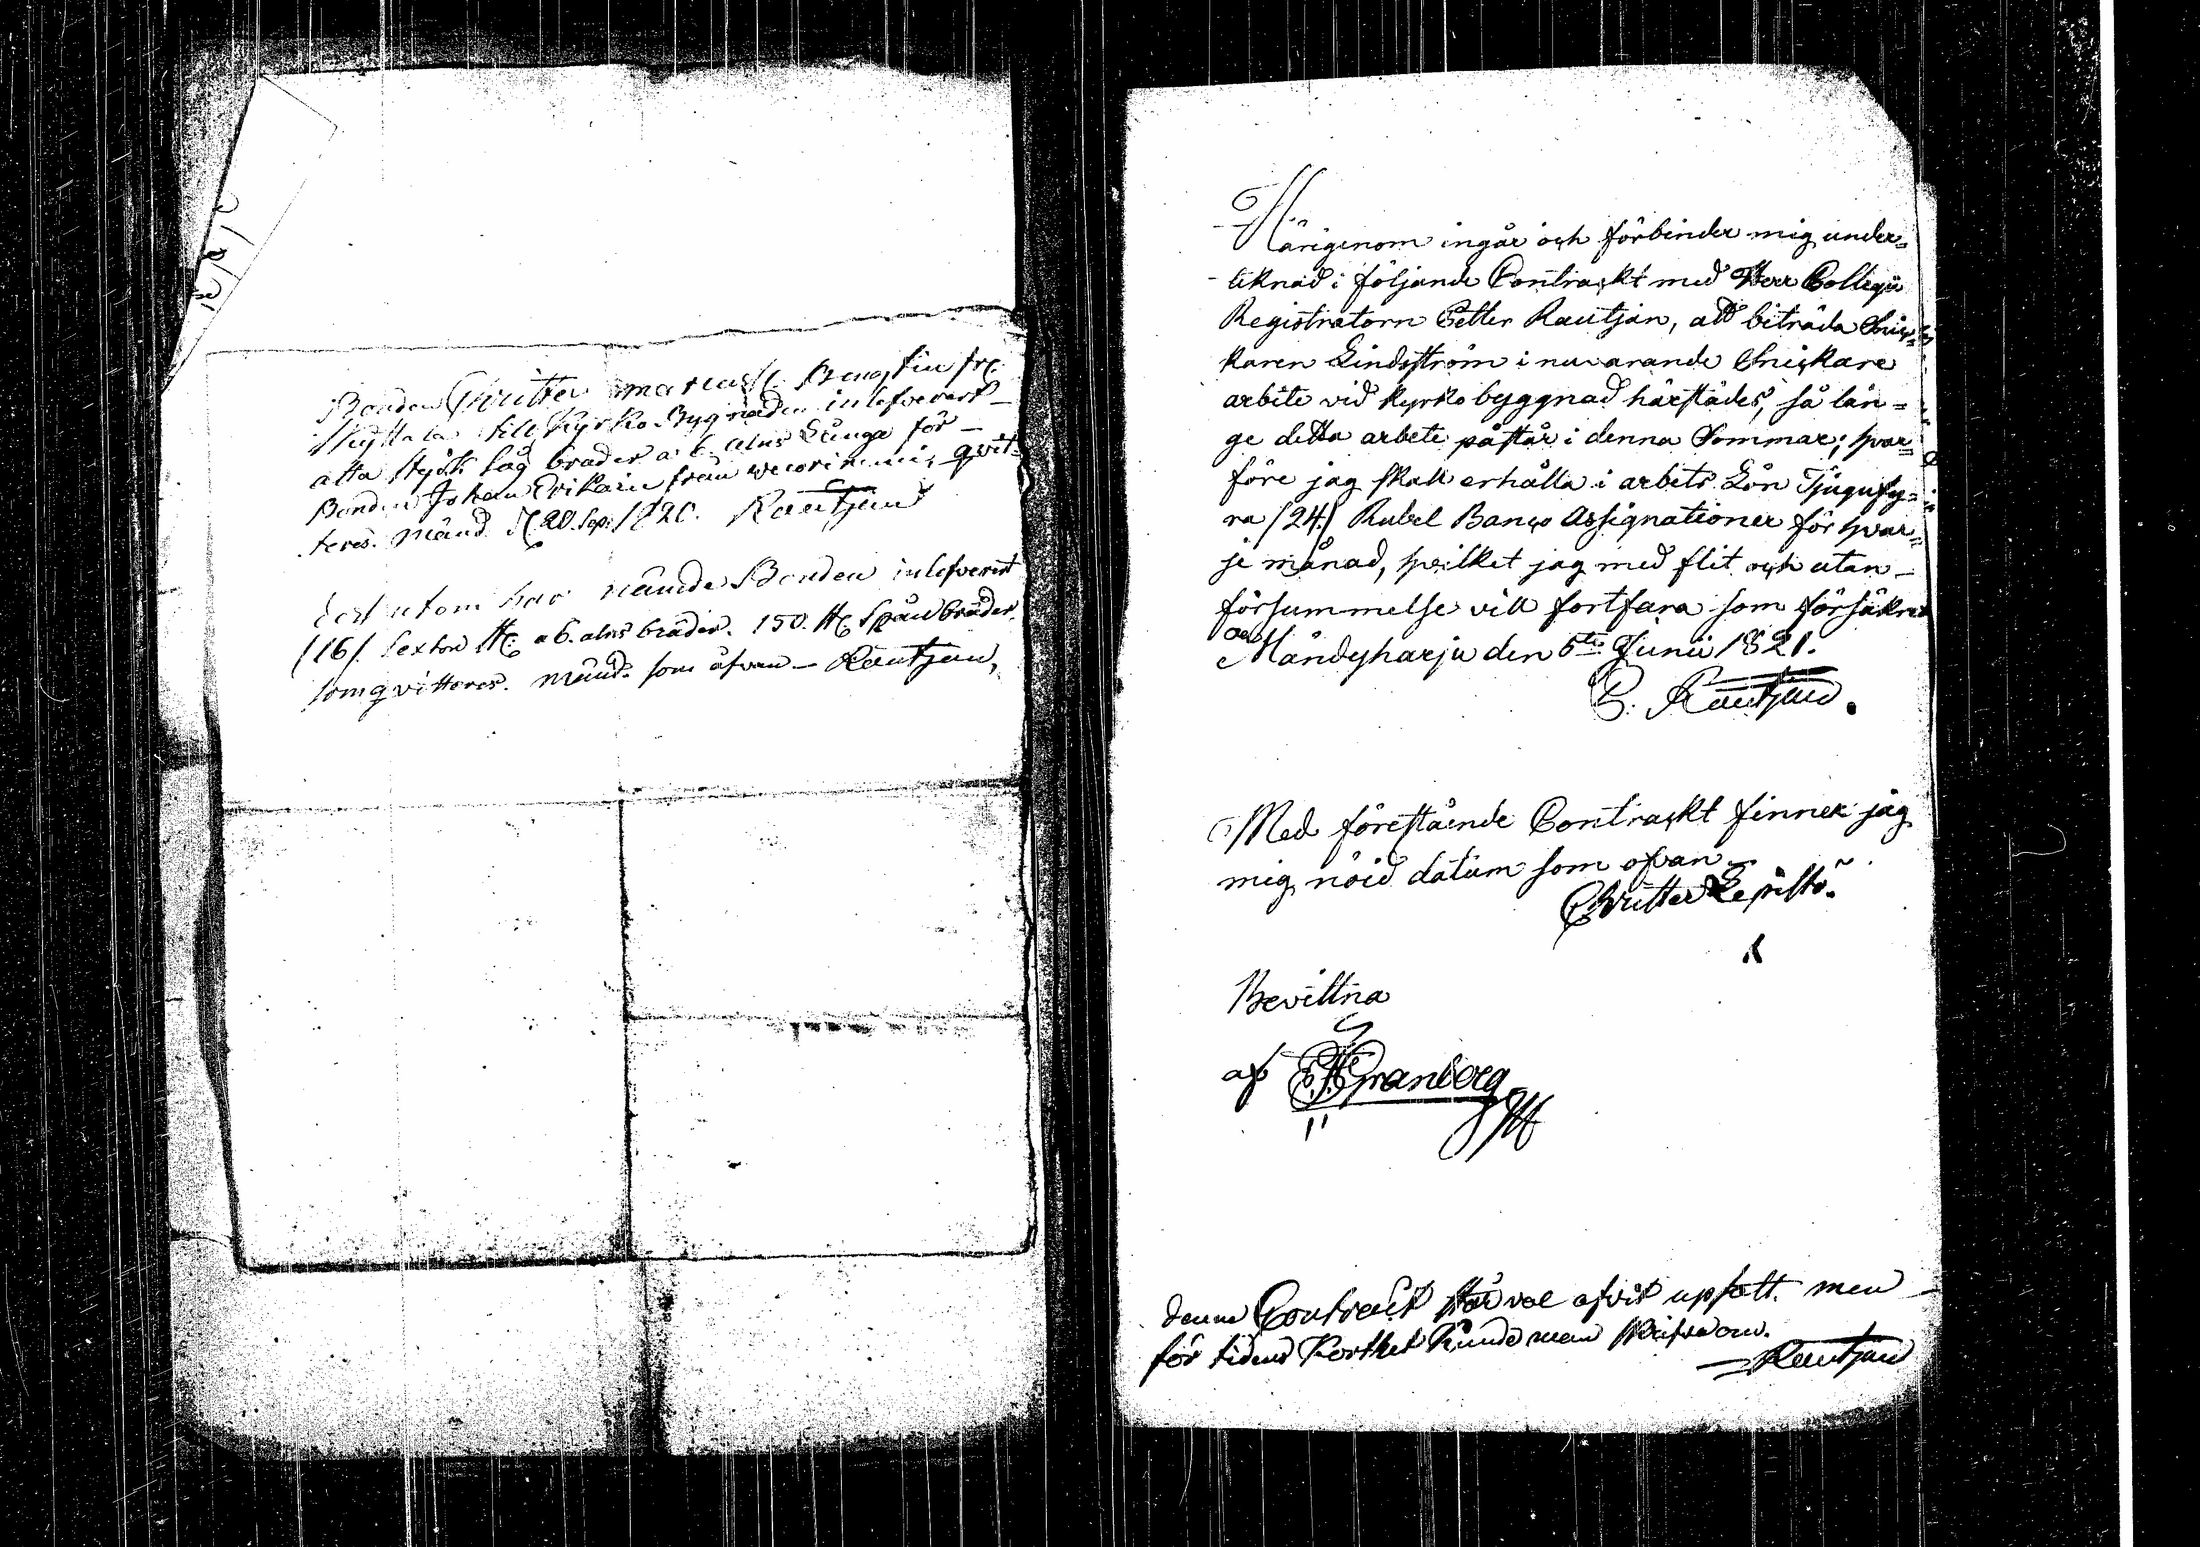 Bonden Christer marcuss. Bengtsin frc.
Skyttala till Kyrko Bygnaden inlefverert
åtta styck såg bräder a 6 alns Långa för
Bonden Johan Erikain från weorinemi, qvit-
teres. Mänd. d. 20. Sep. 1820. Rautjan
desutom har nämde Bonden inlefverert
(16). Sexton st. a 6. alns bräder. 150. st. Spån bräder.
som qvitteres. mänd. som åfvan — Rautjan,
Härigenom ingår och förbinder mig under=
teknad i följande Contrackt med Herr Collegii
Registratorn Petter Rautjan, att biträda Snic=
karen Lindström i nuvarande Snickare
arbete vid kyrko byggnad härstädes, så län=
ge detta arbete påstår i denna Sommar; hvar=
före jag skall erhålla i arbets Lön Tjugufy=
ra /24./ Rubel Banco Assignationer för hvar=
je månad, hvilket jag med flit och utan
försummelse vill fortfara som försäkras
Mändyharju den 6te Junii 1821.
P. Rautjan.
Med förestående Contrackt finner jag
mig nöid datum som ofvan
Christer Lepistö.
Bevittna
af Granberg
denna Contract står väl afvik upsatt. men
för tidens Korthet Kunde man skrifva om.
Rautjan